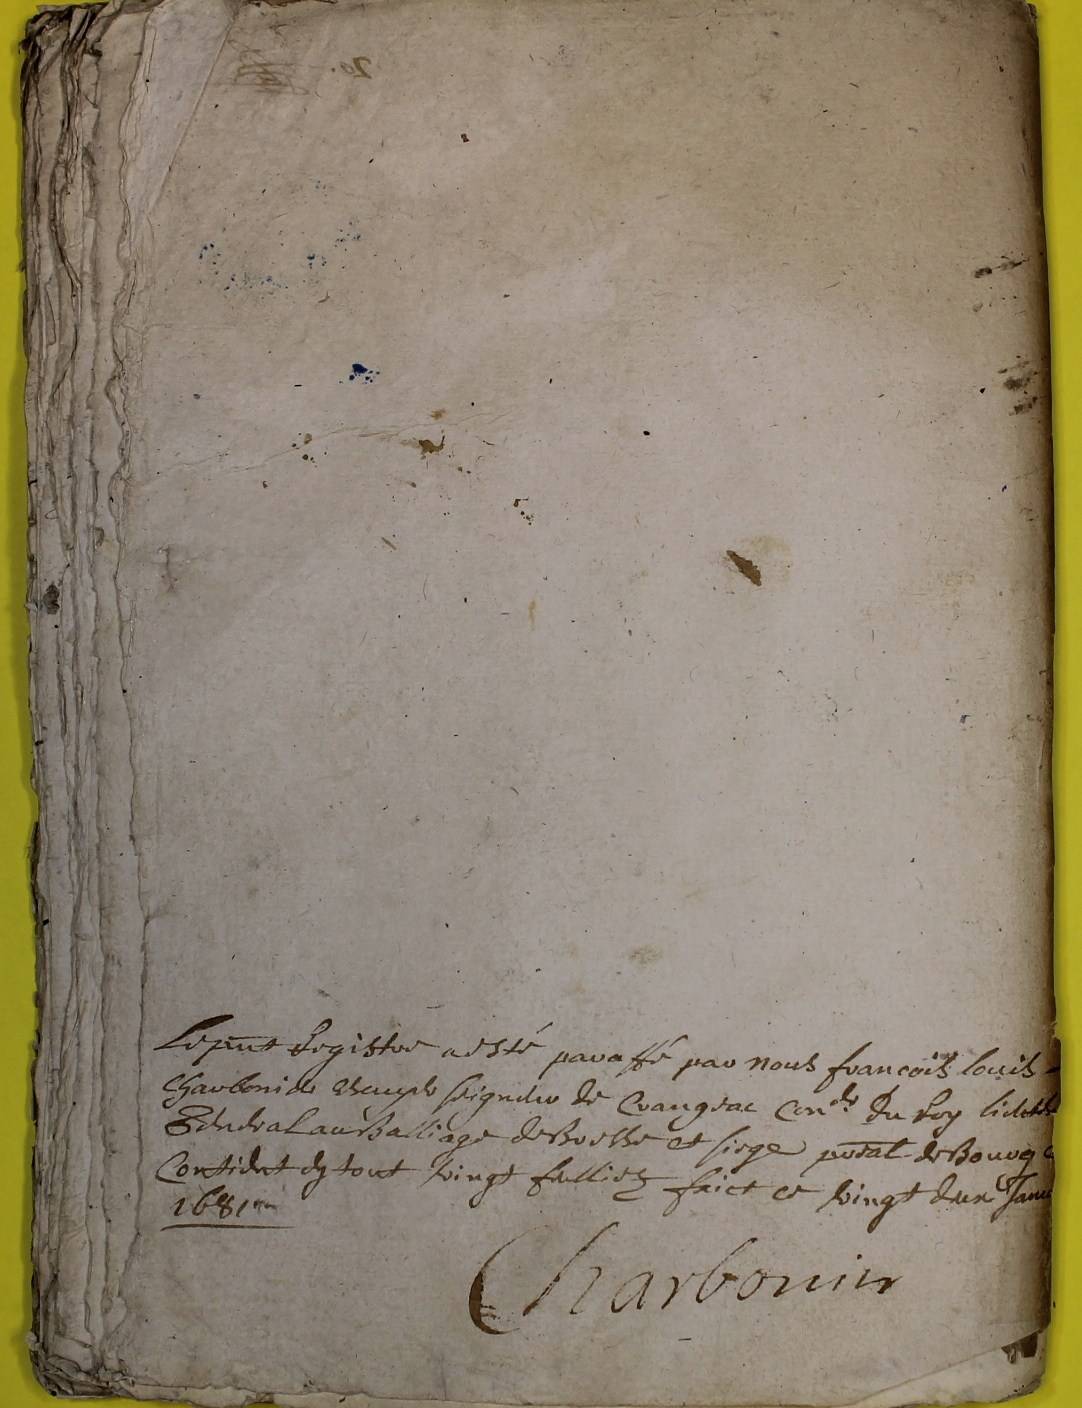 Le pnt Registre a esté paraffé par nous francois louis
Charbonier escuyer seigneur de Crangeac Con.er du Roy lieute
General au Balliage de Bresse et siege pñdal de Bourg
Contient dy tout vingt feulliez faict ce vingt deux Janv
1681
Charbonier